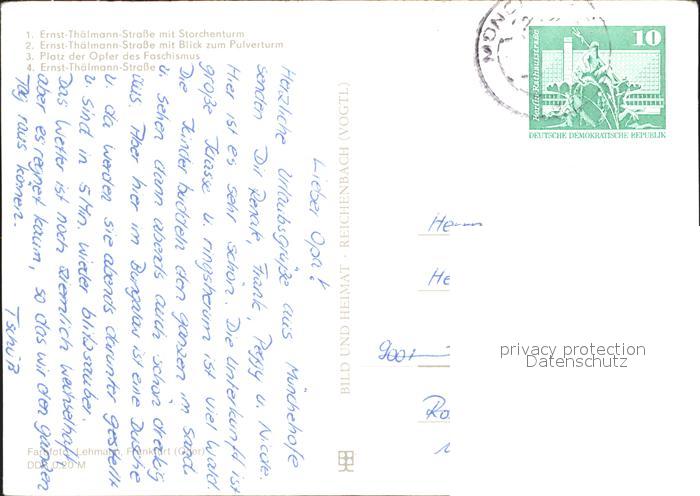 1. Ernst-Thälmann-Straße mit Storchenturm
2. Ernst-Thälmann-Straße mit Blick zum Pulverturm
3. Platz der Opfer des Faschismus
4. Ernst-Thälmann-Straße
Lieber Opa!
Herzliche Urlaubsgrüße aus Münchehofe
senden Dir Renate, Frank, Peggy u. Nicole.
Hier ist es sehr schön. Die Unterkunft ist
große Klasse u. ringsherum ist viel Wald.
Die Kinder buddeln den ganzen im Sand
u. sehen dann abends auch schön dreckig
aus. Aber hier im Bungalow ist eine Dusche
u. da werden sie abends darunter gestellt
u. sind in 5 Min. wieder blitzsauber.
Das Wetter ist noch ziemlich wechselhaft
aber es regnet kaum, so das wir den ganzen
Tag raus können.
Tschüß
Farbfoto: Lehmann, Frankfurt (Oder)
DDR 0,20 M
BILD UND HEIMAT · REICHENBACH (VOGTL)
10
Berlin, Rathausstraße
DEUTSCHE DEMOKRATISCHE REPUBLIK
Herrn
He
9001
privacy protection
Datenschutz